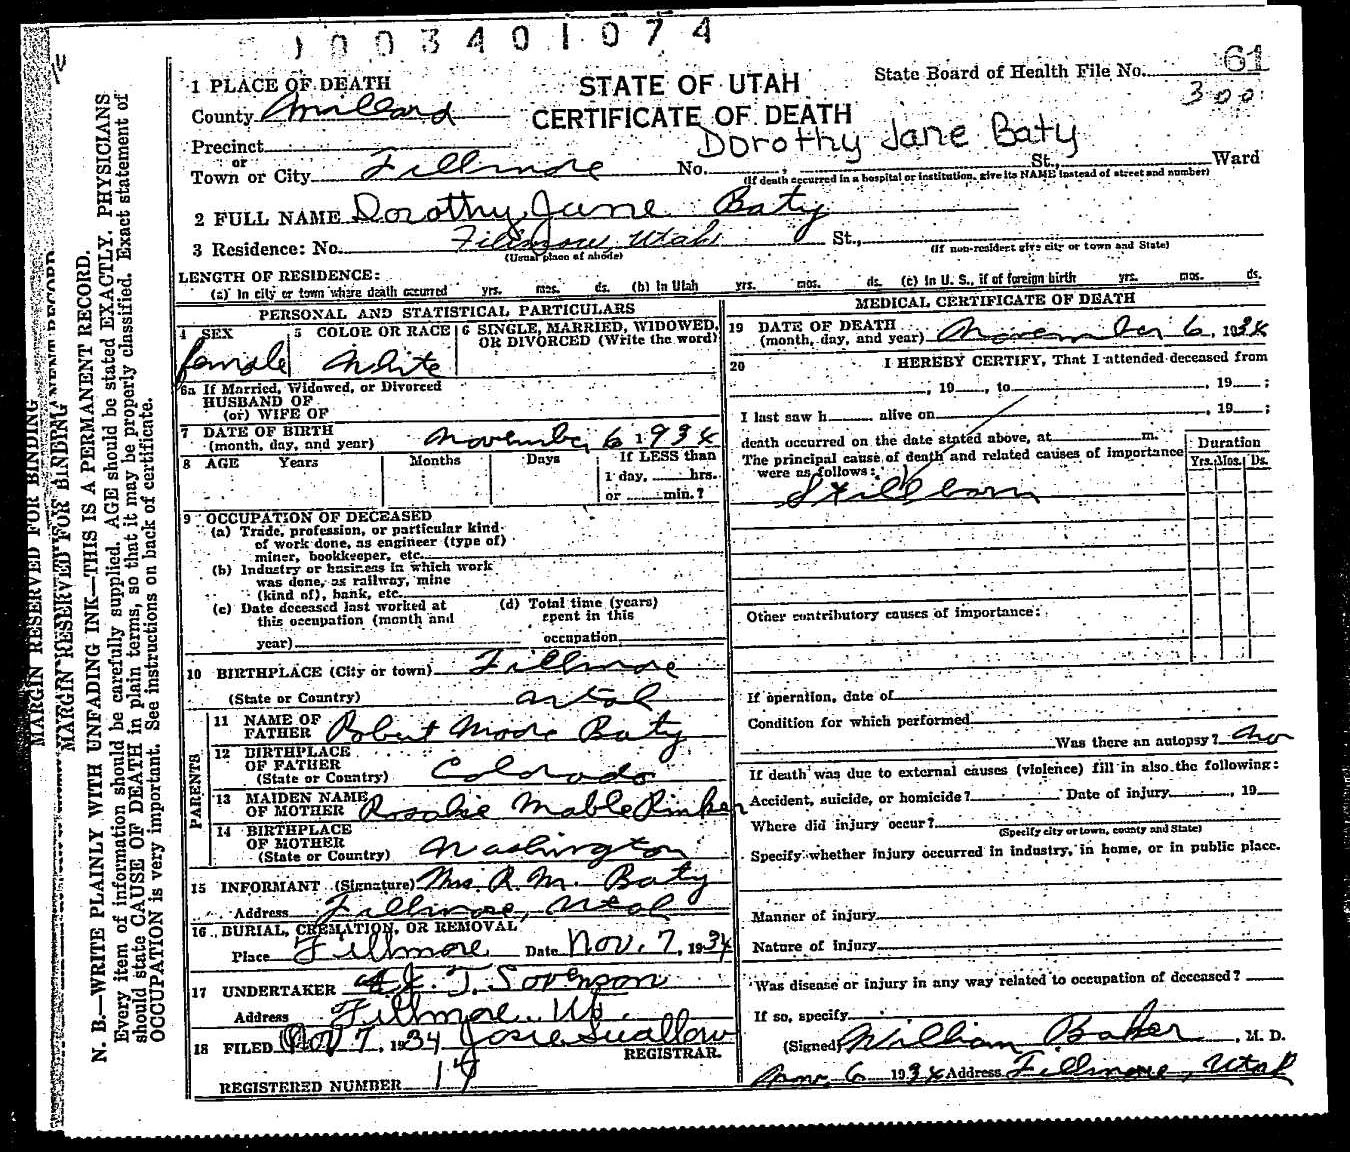 1003401074
1 PLACE OF DEATH
STATE OF UTAH
State Board of Health File No. 61
300
County Millard
CERTIFICATE OF DEATH
Dorothy Jane Baty
Precinct
or
Town or City Fillmore No. St., Ward
(If death occurred in a hospital or institution, give its NAME instead of street and number)
2 FULL NAME Dorothy Jane Baty
3 Residence: No. Fillmore, Utah St.,
(Usual place of abode) (If non-resident give city or town and State)
LENGTH OF RESIDENCE:
(a) In city or town where death occurred yrs. mos. ds. (b) In Utah yrs. mos. ds. (c) In U. S., if of foreign birth yrs. mos. ds.
PERSONAL AND STATISTICAL PARTICULARS
4 SEX 5 COLOR OR RACE 6 SINGLE, MARRIED, WIDOWED, OR DIVORCED (Write the word)
female White
6a If Married, Widowed, or Divorced
HUSBAND OF
(or) WIFE OF
7 DATE OF BIRTH
(month, day, and year) November 6 1934
8 AGE Years Months Days If LESS than
1 day, hrs.
or min.?
9 OCCUPATION OF DECEASED
(a) Trade, profession, or particular kind
of work done, as engineer (type of)
miner, bookkeeper, etc.
(b) Industry or business in which work
was done, as railway, mine
(kind of), bank, etc.
(c) Date deceased last worked at (d) Total time (years)
this occupation (month and spent in this
year) occupation
10 BIRTHPLACE (City or town) Fillmore
(State or Country) Utah
PARENTS
11 NAME OF
FATHER Robert Moore Baty
12 BIRTHPLACE
OF FATHER
(State or Country) Colorado
13 MAIDEN NAME
OF MOTHER Rosalie Mable
14 BIRTHPLACE
OF MOTHER
(State or Country) Washington
15 INFORMANT (Signature) Mrs. R. M. Baty
Address Fillmore, Utah
16 BURIAL, CREMATION, OR REMOVAL
Place Fillmore Date Nov. 7, 1934
17 UNDERTAKER T. Sorenson
Address Fillmore Ut.
18 FILED Nov 7, 1934 Josie Swallow
REGISTRAR.
REGISTERED NUMBER 17
MEDICAL CERTIFICATE OF DEATH
19 DATE OF DEATH
(month, day, and year) November 6, 1934
20 I HEREBY CERTIFY, That I attended deceased from
, 19 , to , 19 ;
I last saw h alive on , 19 ;
death occurred on the date stated above, at m.
The principal cause of death and related causes of importance
were as follows:
Duration
Yrs. Mos. Ds.
Stillborn
Other contributory causes of importance:
If operation, date of
Condition for which performed
Was there an autopsy? no
If death was due to external causes (violence) fill in also the following:
Accident, suicide, or homicide? Date of injury , 19
Where did injury occur?
(Specify city or town, county and State)
Specify whether injury occurred in industry, in home, or in public place.
Manner of injury
Nature of injury
Was disease or injury in any way related to occupation of deceased?
If so, specify
(Signed) William Baker, M. D.
Nov. 6 1934 Address Fillmore, Utah
MARGIN RESERVED FOR BINDING
MARGIN RESERVED FOR BINDING
N. B.—WRITE PLAINLY WITH UNFADING INK—THIS IS A PERMANENT RECORD.
Every item of information should be carefully supplied. AGE should be stated EXACTLY. PHYSICIANS
should state CAUSE OF DEATH in plain terms, so that it may be properly classified. Exact statement of
OCCUPATION is very important. See instructions on back of certificate.